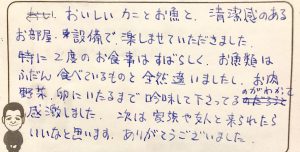 おいしいカニとお魚と、清潔感のある
お部屋、設備で楽しませていただきました。
特に2度のお食事はすばらしく、お魚類は
ふだん食べているものと全然違いましたし、お肉
野菜、卵にいたるまで吟味して下さってるのがわかって
感激しました。次は家族や友人と来られたら
いいなと思います。ありがとうございました。